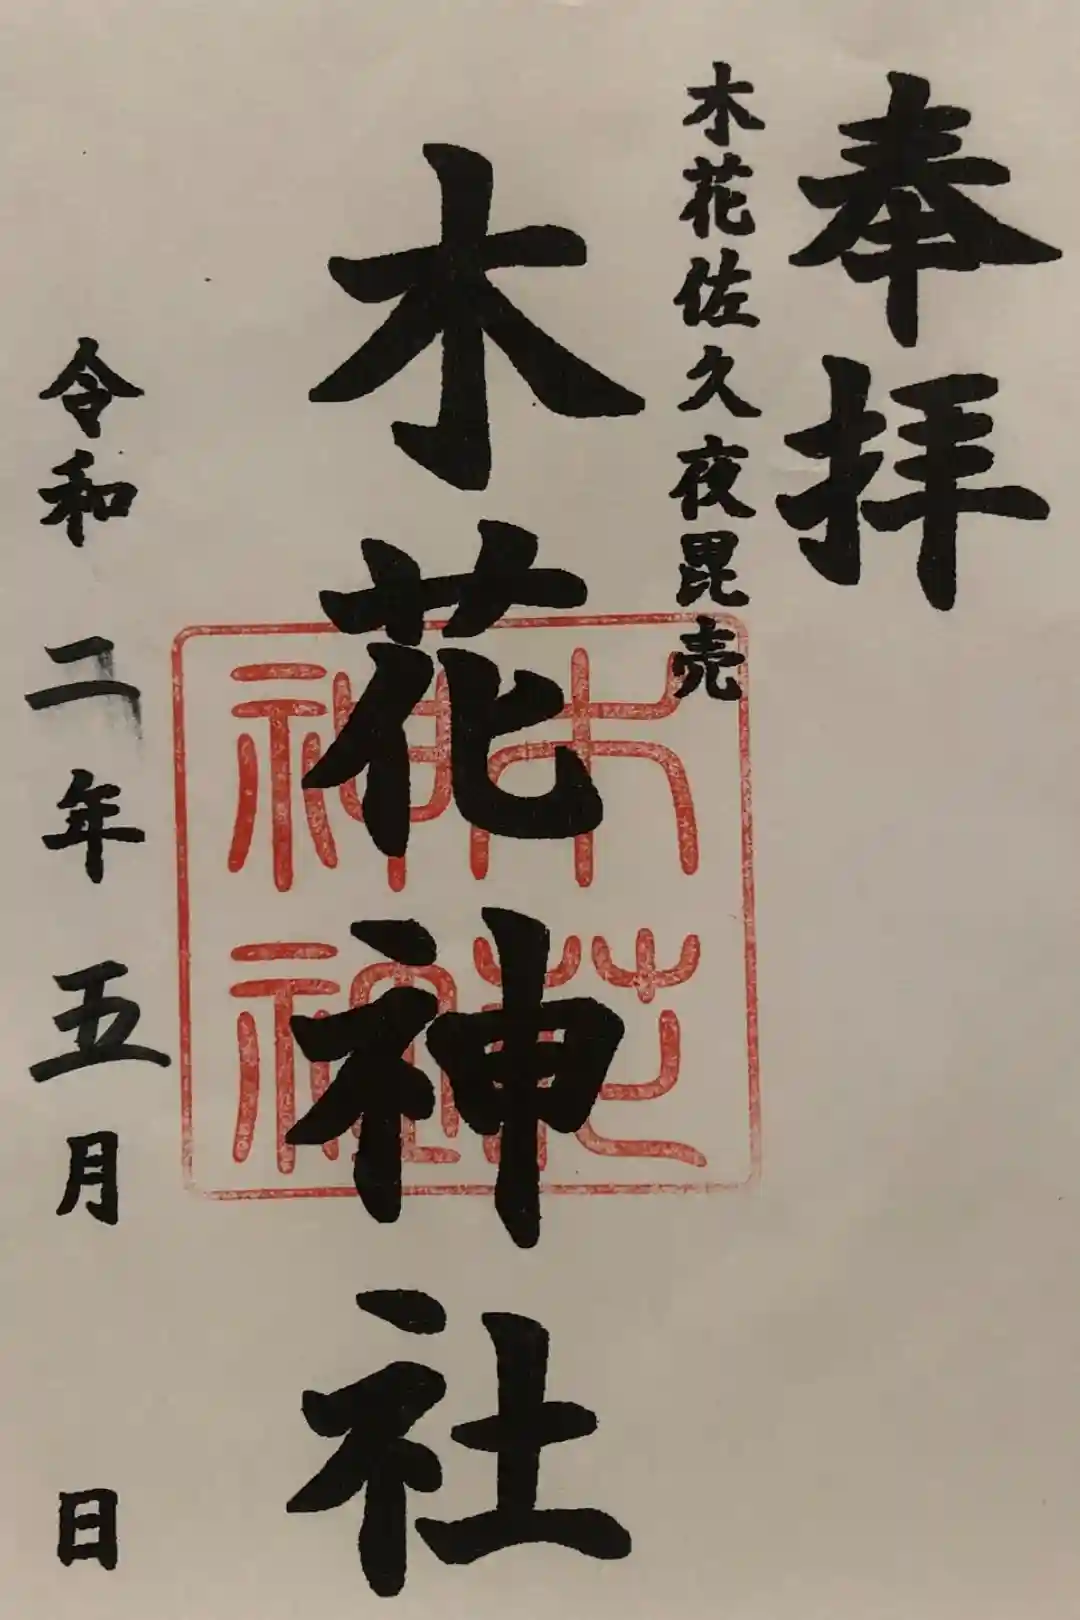 奉拝
木花佐久夜毘売
木花神社
木花
神社
令和二年五月 日